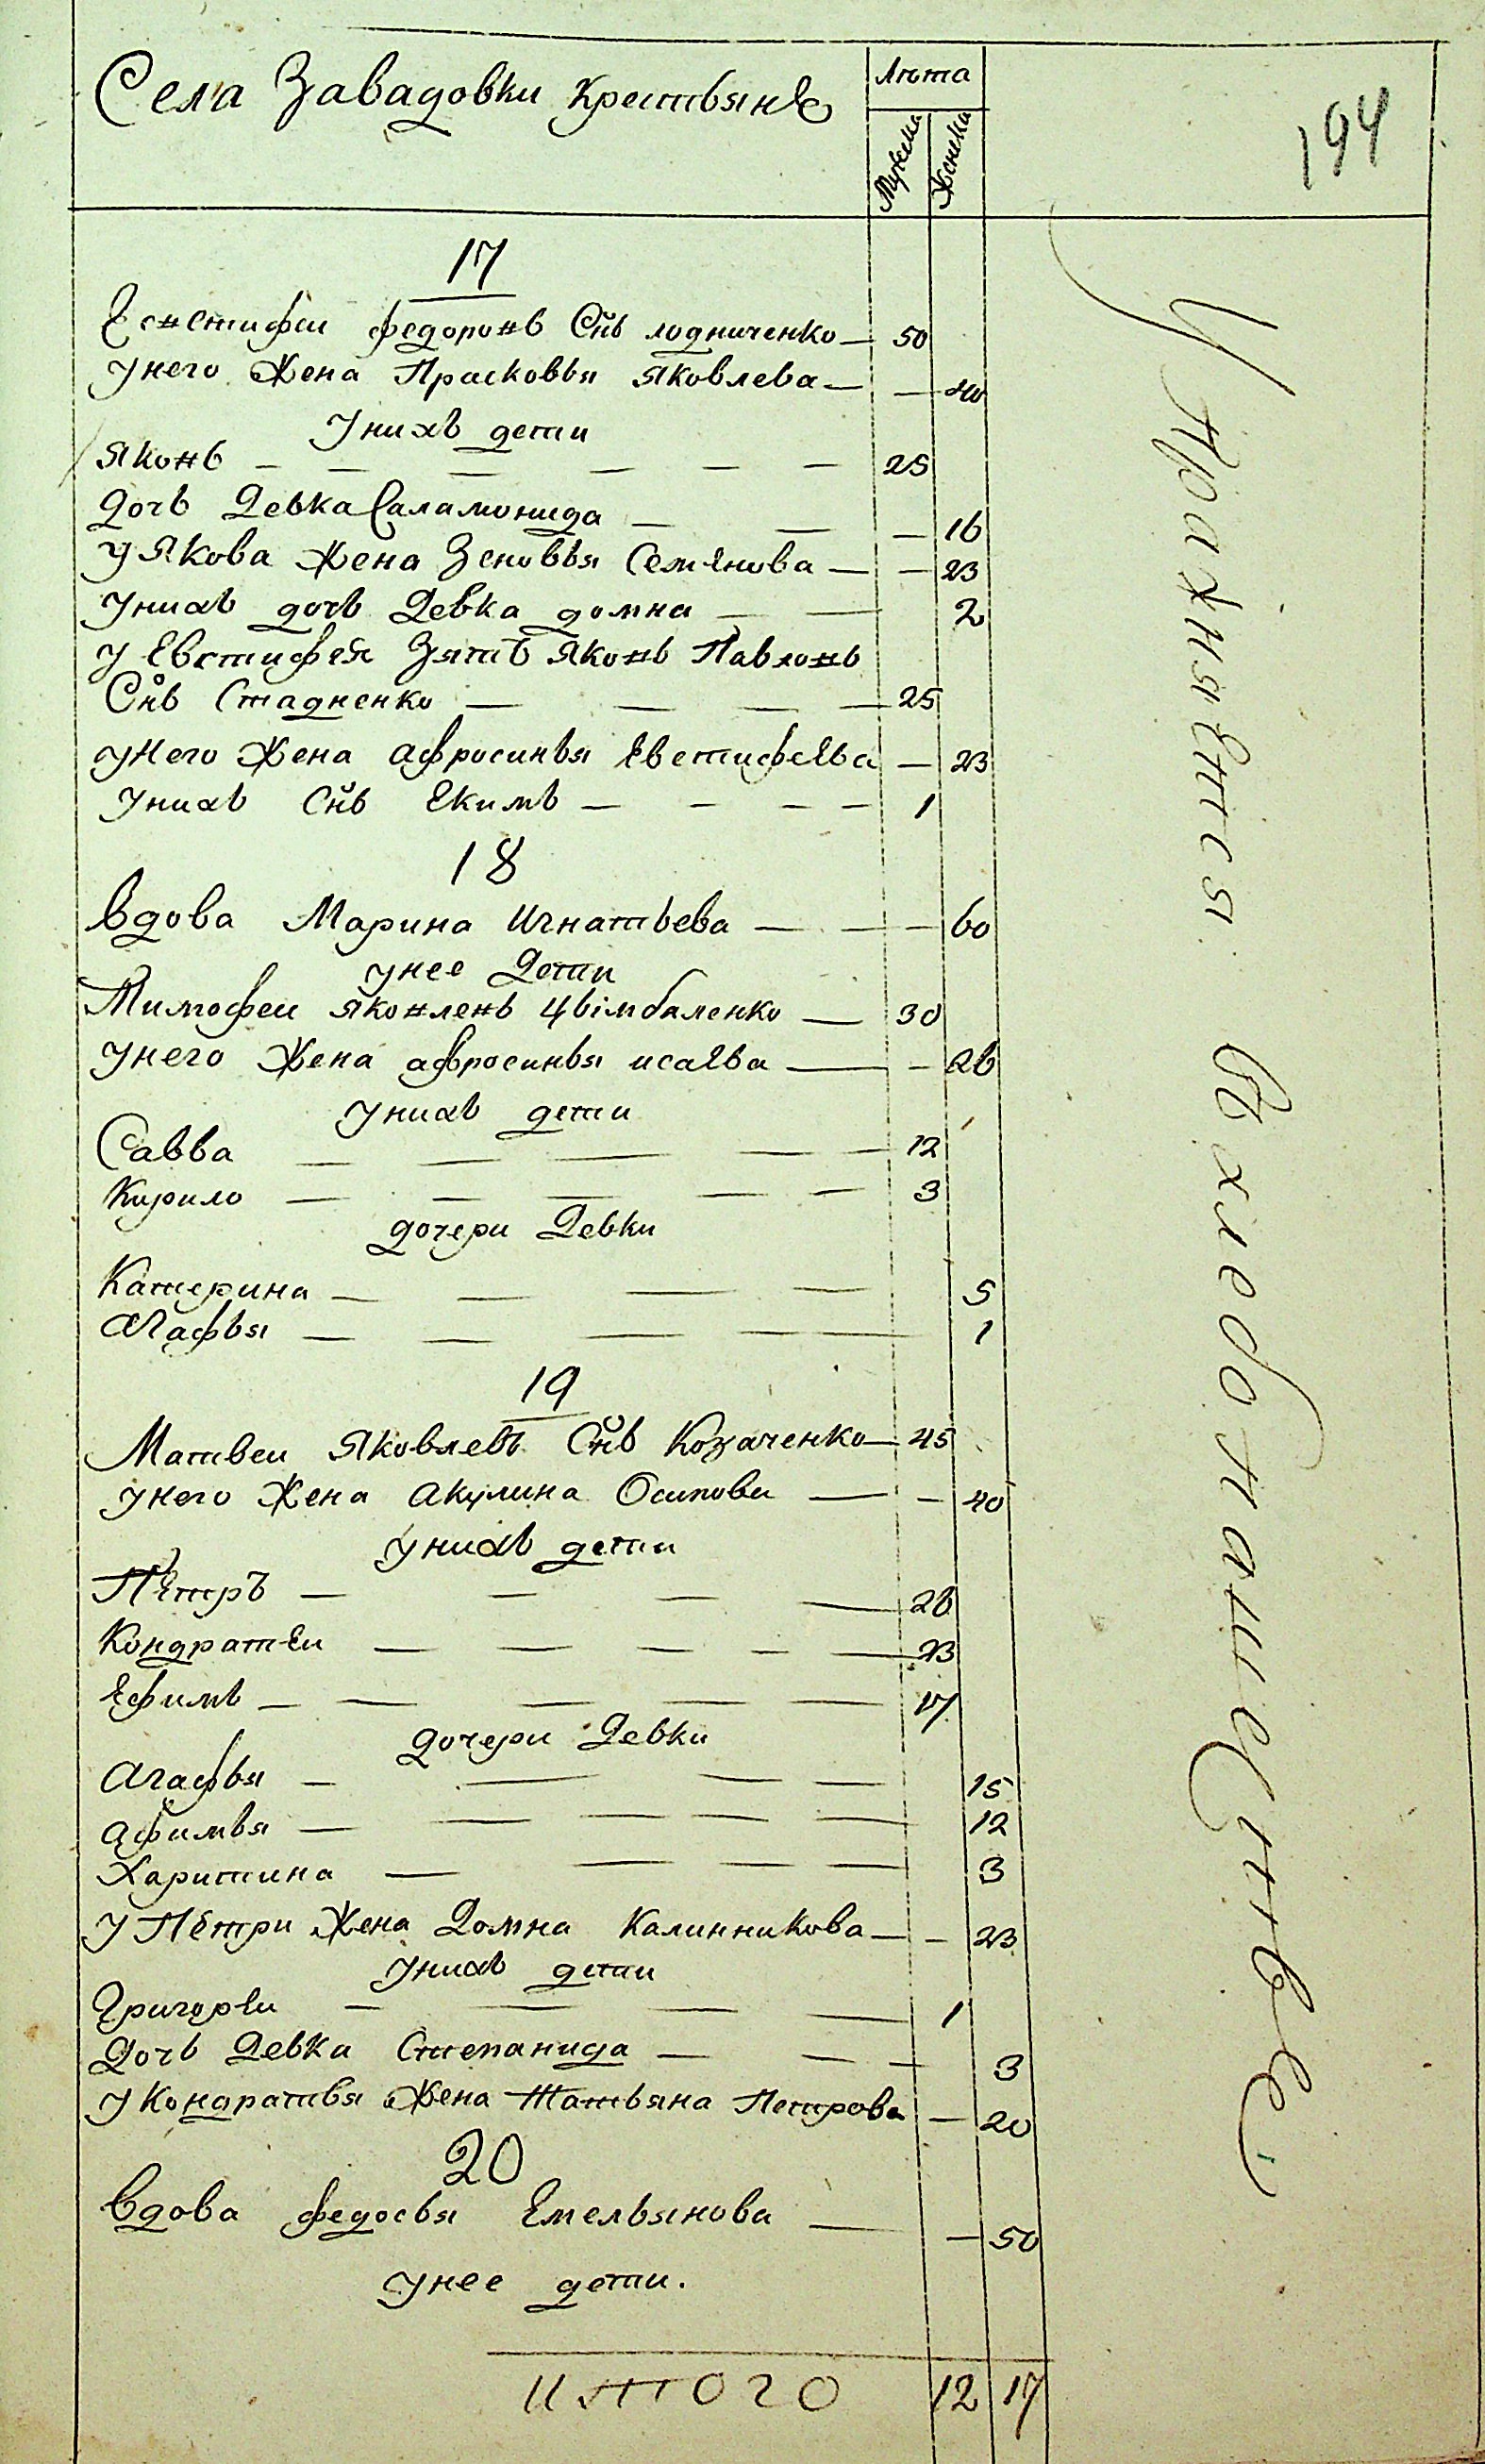 Села Завадовки крестьяне
Лѣта
Мужеска
Женска
194
17
Евстифеи федоровъ Снъ лодниченко 50
У него Жена Прасковья Яковлева 40
У нихъ дети
Яковъ 25
Дочь Девка Саламонида 16
У Якова Жена Зеновья Семенова 23
У нихъ дочь Девка домна 2
У Евстифея Зять Яковъ Павловъ
Снъ Стадненко 25
У него Жена афросинья Евстифеева 23
У нихъ Снъ Екимъ 1
18
Вдова Марина Игнатьева 60
у нее Дети
Тимофеи Яковлевъ Цьімбаленко 30
У него Жена афросинья исаева 26
У нихъ дети
Савва 12
Кирило 3
дочери Девки
Катерина 5
Агафья 1
19
Матвеи Яковлевъ Снъ Козаченко 45
У него Жена акулина Осипова 40
У нихъ дети
Пётръ 26
Кондратеи 23
Ефимъ 17
дочери Девки
Агафья 15
афимья 12
Харитина 3
У Петри Жена Домна Калинникова 23
У нихъ дети
Григореи 1
Дочь Девка Степанида 3
У Кондратья Жена Татьяна Петрова 20
20
Вдова федосья Емельянова 50
у нее дети.
итого 12 17
Упражняется в хлебопашестве